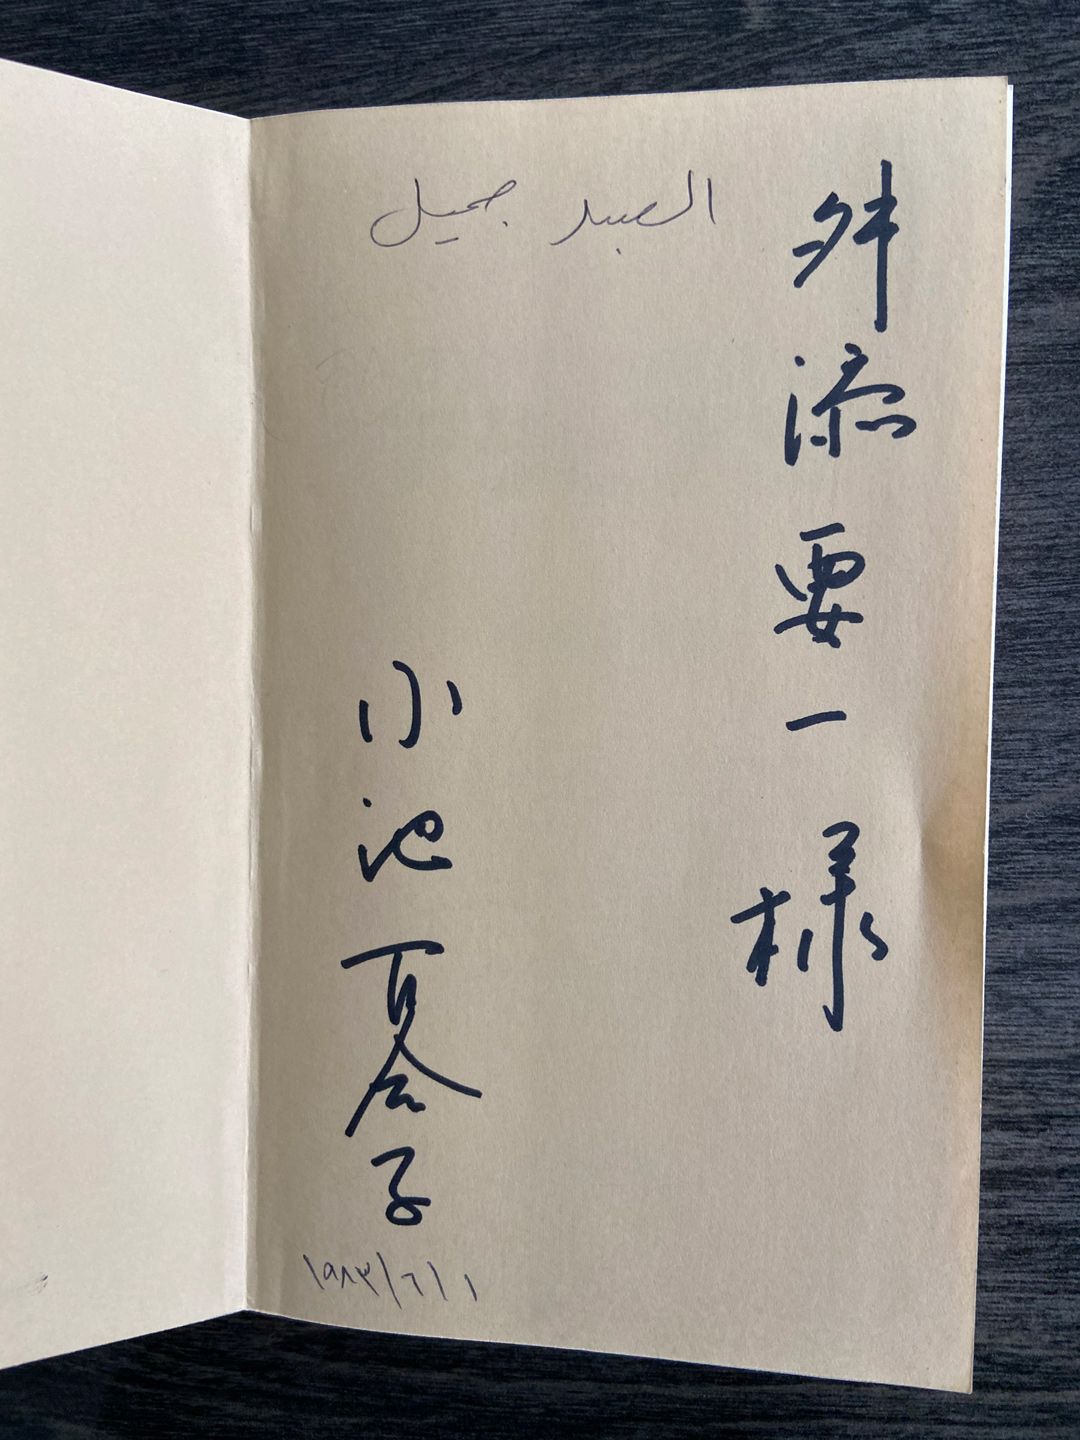 الصبر جميل
舛添要一様
小池百合子
١٩٨٣/٦/١